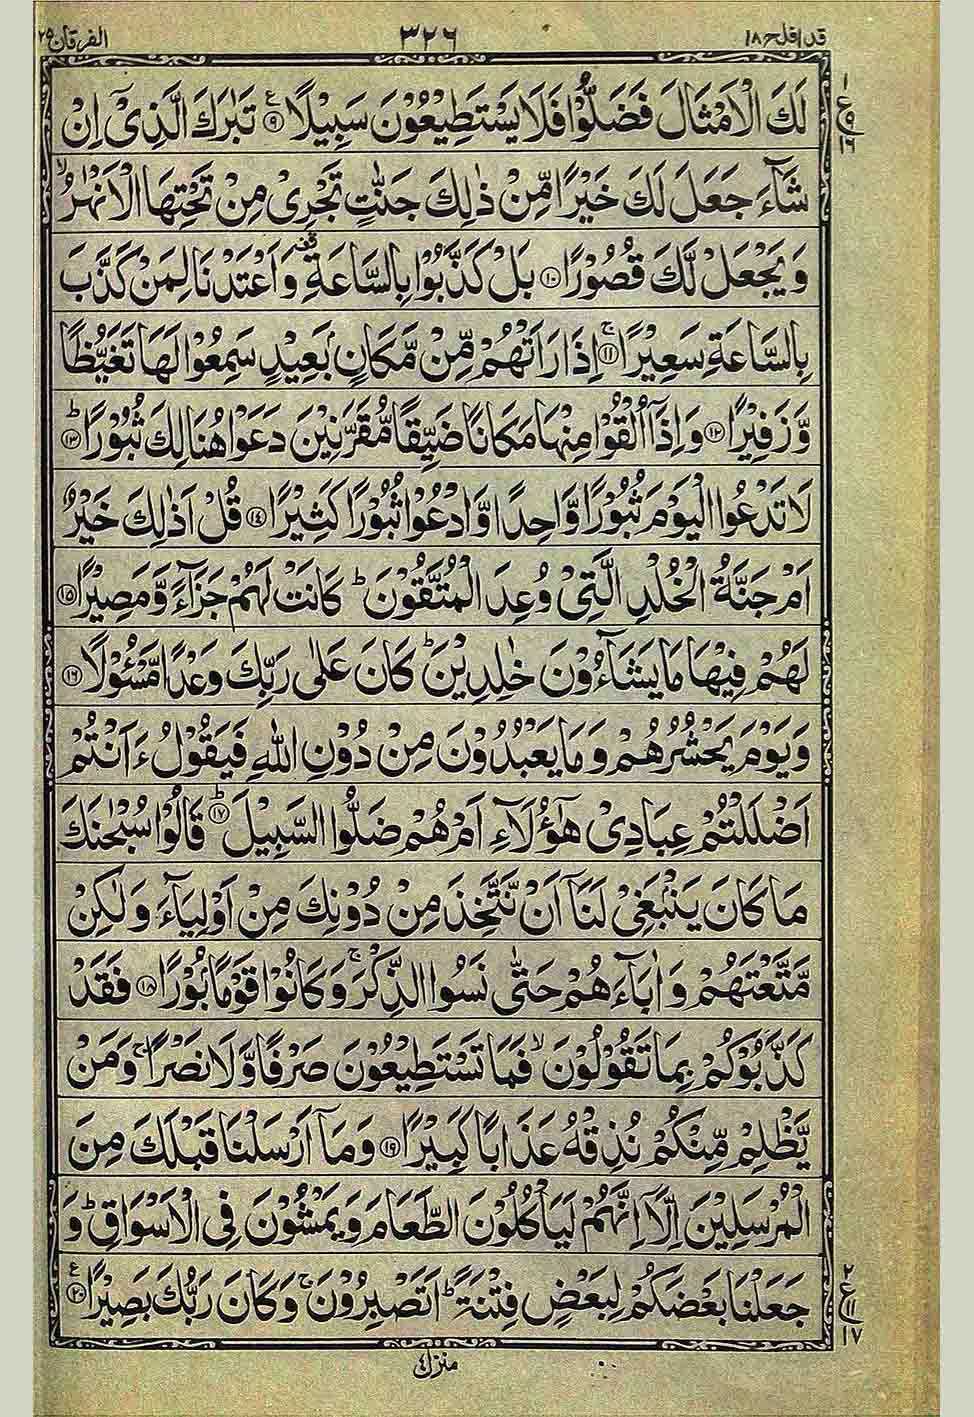 قد افلح ١٨
٣٢٦
الفرقان ٢٥
لَكَ الْاَمْثَالَ فَضَلُّوْا فَلَا يَسْتَطِيْعُوْنَ سَبِيْلًا ۟ ٩ ع تَبٰرَكَ الَّذِيْۤ اِنْ
شَآءَ جَعَلَ لَكَ خَيْرًا مِّنْ ذٰلِكَ جَنّٰتٍ تَجْرِيْ مِنْ تَحْتِهَا الْاَنْهٰرُ ۙ
وَيَجْعَلْ لَّكَ قُصُوْرًا ١٠ بَلْ كَذَّبُوْا بِالسَّاعَةِ وَاَعْتَدْنَا لِمَنْ كَذَّبَ
بِالسَّاعَةِ سَعِيْرًا ۚ ١١ اِذَا رَاَتْهُمْ مِّنْ مَّكَانٍۭ بَعِيْدٍ سَمِعُوْا لَهَا تَغَيُّظًا
وَّزَفِيْرًا ١٢ وَاِذَاۤ اُلْقُوْا مِنْهَا مَكَانًا ضَيِّقًا مُّقَرَّنِيْنَ دَعَوْا هُنَالِكَ ثُبُوْرًا ؕ ١٣
لَا تَدْعُوا الْيَوْمَ ثُبُوْرًا وَّاحِدًا وَّادْعُوْا ثُبُوْرًا كَثِيْرًا ١٤ قُلْ اَذٰلِكَ خَيْرٌ
اَمْ جَنَّةُ الْخُلْدِ الَّتِيْ وُعِدَ الْمُتَّقُوْنَ ؕ كَانَتْ لَهُمْ جَزَآءً وَّمَصِيْرًا ١٥
لَهُمْ فِيْهَا مَا يَشَآءُوْنَ خٰلِدِيْنَ ؕ كَانَ عَلٰى رَبِّكَ وَعْدًا مَّسْـُٔوْلًا ١٦
وَيَوْمَ يَحْشُرُهُمْ وَمَا يَعْبُدُوْنَ مِنْ دُوْنِ اللّٰهِ فَيَقُوْلُ ءَاَنْتُمْ
اَضْلَلْتُمْ عِبَادِيْ هٰۤؤُلَآءِ اَمْ هُمْ ضَلُّوا السَّبِيْلَ ؕ ١٧ قَالُوْا سُبْحٰنَكَ
مَا كَانَ يَنْۢبَغِيْ لَنَاۤ اَنْ نَّتَّخِذَ مِنْ دُوْنِكَ مِنْ اَوْلِيَآءَ وَلٰكِنْ
مَّتَّعْتَهُمْ وَاٰبَآءَهُمْ حَتّٰى نَسُوا الذِّكْرَ ۚ وَكَانُوْا قَوْمًۢا بُوْرًا ١٨ فَقَدْ
كَذَّبُوْكُمْ بِمَا تَقُوْلُوْنَ ۙ فَمَا تَسْتَطِيْعُوْنَ صَرْفًا وَّلَا نَصْرًا ۚ وَمَنْ
يَّظْلِمْ مِّنْكُمْ نُذِقْهُ عَذَابًا كَبِيْرًا ١٩ وَمَاۤ اَرْسَلْنَا قَبْلَكَ مِنَ
الْمُرْسَلِيْنَ اِلَّاۤ اِنَّهُمْ لَيَاْكُلُوْنَ الطَّعَامَ وَيَمْشُوْنَ فِي الْاَسْوَاقِ ؕ وَ
جَعَلْنَا بَعْضَكُمْ لِبَعْضٍ فِتْنَةً ؕ اَتَصْبِرُوْنَ ۚ وَكَانَ رَبُّكَ بَصِيْرًا ٢٠ ع
١
ع ٩
١٦
٢
ع ١١
١٧
منزل ٤